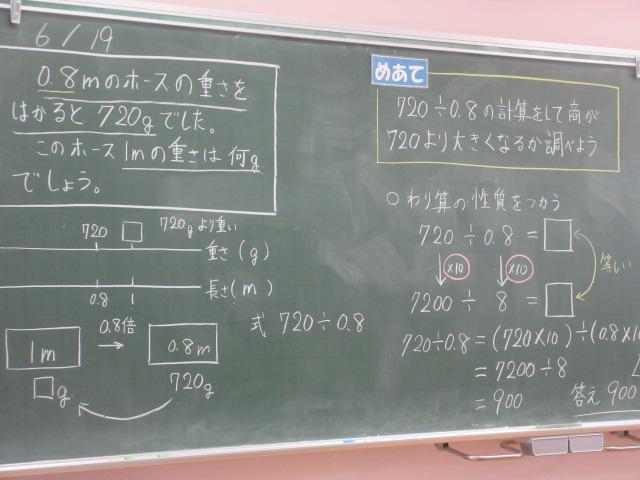 6/19
0.8mのホースの重さを
はかると720gでした。
このホース1mの重さは何g
でしょう。
720 □ 720gより重い
重さ(g)
長さ(m)
0.8 1
0.8倍
1m
0.8m
□g
720g
式 720÷0.8
めあて
720÷0.8の計算をして商が
720より大きくなるか調べよう
○わり算の性質をつかう
720÷0.8=□
×10 ×10
等しい
7200÷8=□
720÷0.8=(720×10)÷(0.8×10
=7200÷8
=900
答え 900